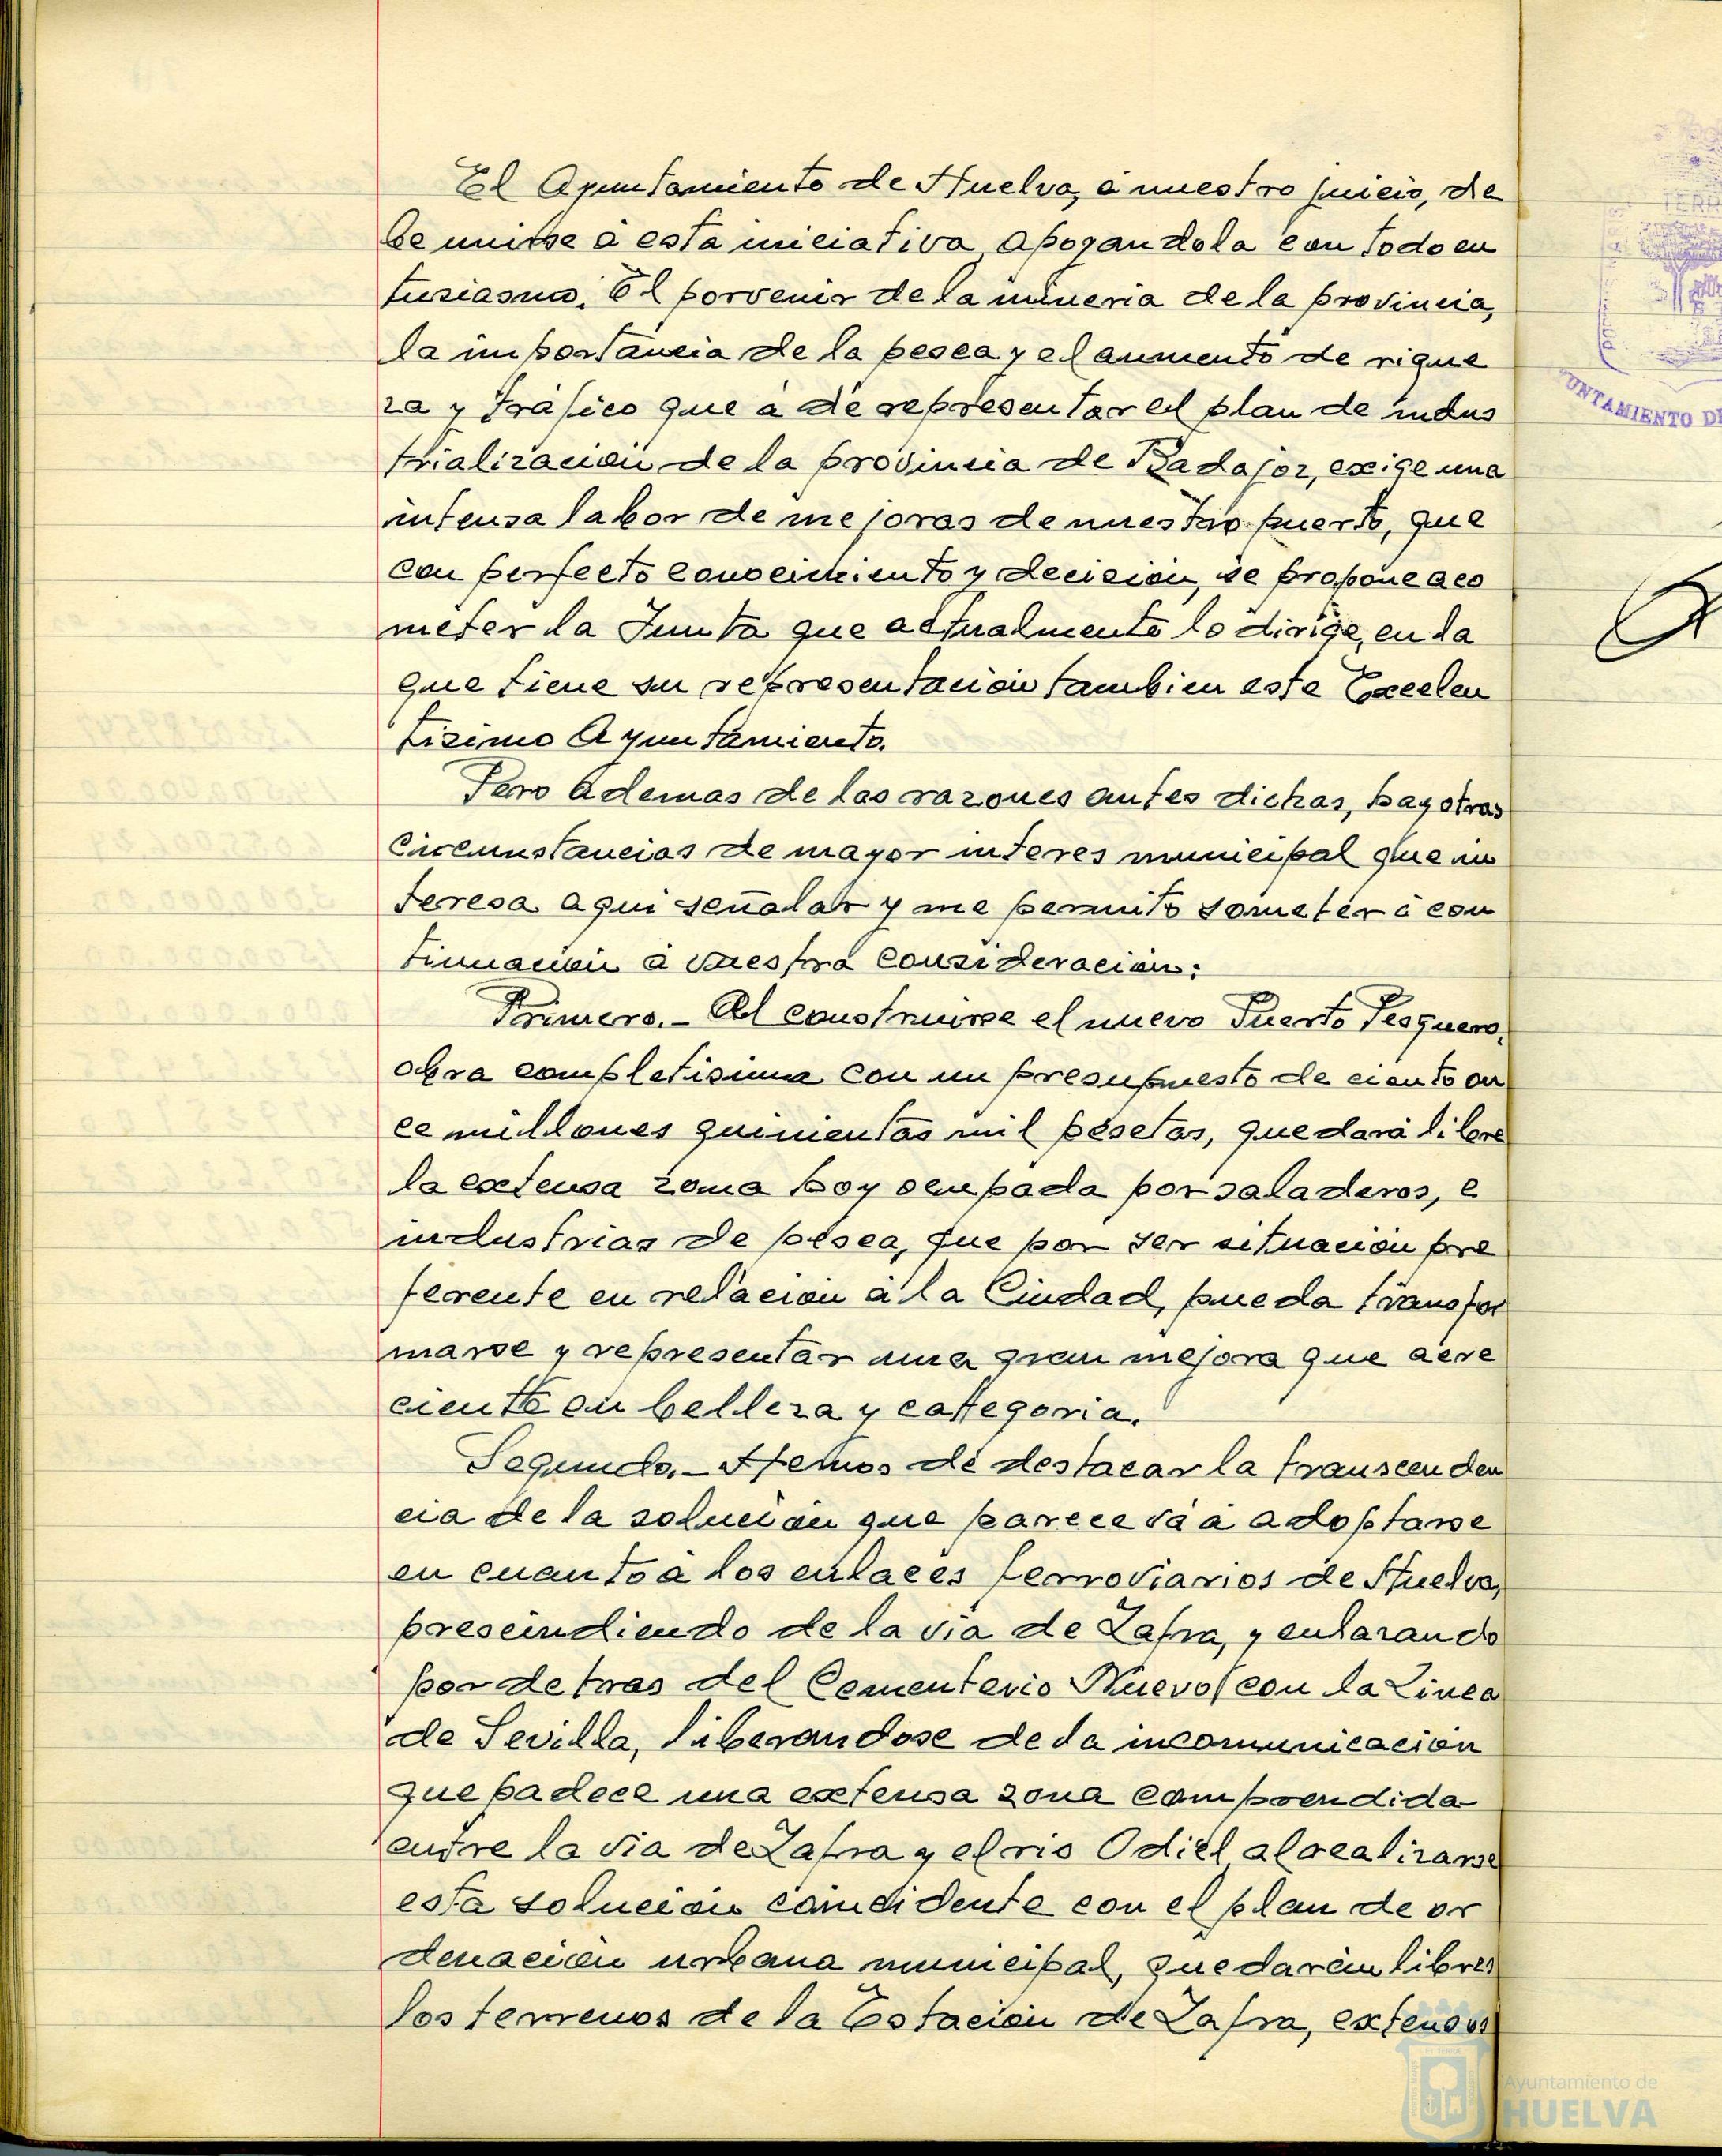 El Ayuntamiento de Huelva, á nuestro juicio, de
be unirse á esta iniciativa apoyandola con todo en
tusiasmo. El porvenir de la mineria de la provincia,
la importáncia de la pesca y el aumento de rique
za y tráfico que á de representar el plan de indus
trialización de la provincia de Badajoz, exige una
intensa labor de mejoras de nuestro puerto, que
con perfecto conocimiento y decision, se propone aco
meter la Junta que actualmente lo dirige, en la
que tiene su representación tambien este Excelen
tisimo Ayuntamiento.
Pero Ademas de las razones antes dichas, hay otras
circunstancias de mayor interes municipal que in
teresa aqui señalar y me permito someter á con
tinuación á vuestra consideración:
Primero.- Al construirse el nuevo Puerto Pesquero,
obra completisima con un presupuesto de ciento on
ce millones quinientas mil pesetas, quedará libre
la extensa zona hoy ocupada por saladeros, e
industrias de pesca, que por ser situación pre
ferente en relación á la Ciudad, pueda transfor
marse y representar una gran mejora que acre
ciente en belleza y categoria.
Segundo.- Hemos de destacar la transcenden
cia de la solución que parece vá á adoptarse
en cuanto á los enlaces ferroviarios de Huelva,
prescindiendo de la via de Zafra, y enlazando
por detras del Cementerio Nuevo con la Linea
de Sevilla, liberandose de la incomunicación
que padece una extensa zona comprendida
entre la via de Zafra y el rio Odiel, al realizarse
esta solución coincidente con el plan de or
denación urbana municipal, quedarán libres
los terrenos de la Estación de Zafra, extensos
TERR
UNTAMIENTO DE
Ayuntamiento de
HUELVA